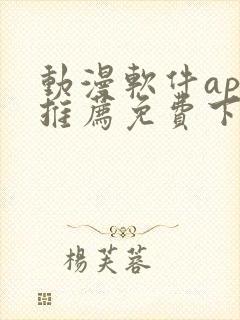 動漫軟件ap
推薦免費下
楊芙蓉